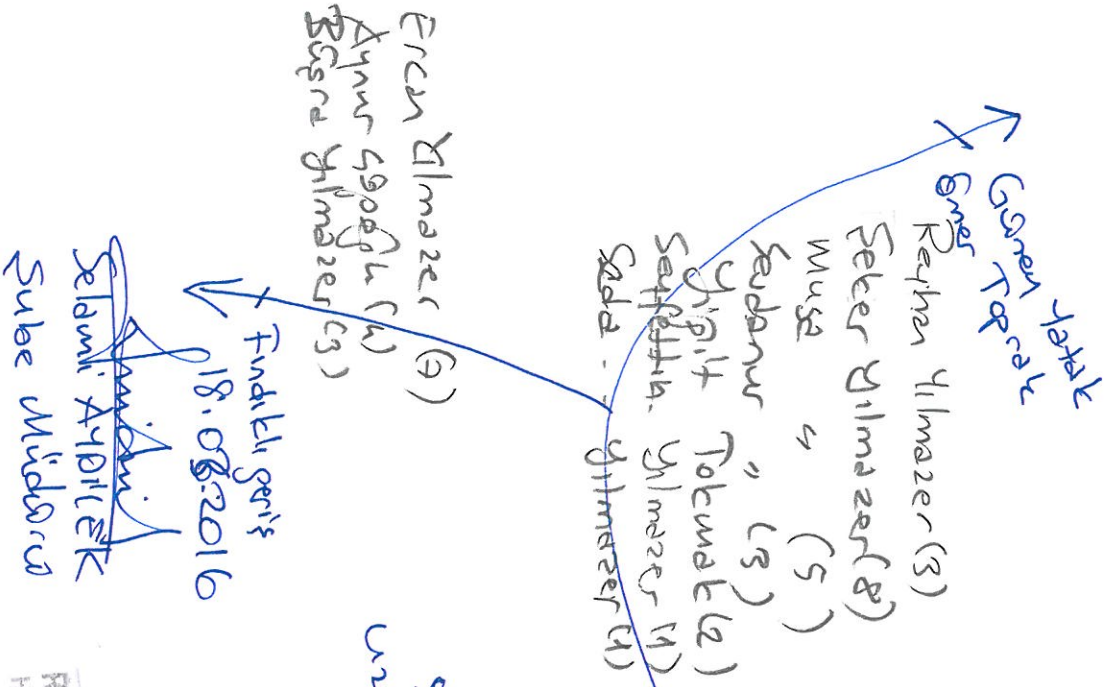 Yatak
Toprak
Ömer
Reyhan Yılmazer (3)
Şeker Yılmazer (8)
Musa " (5)
Sudanur " (3)
Yiğit Tokmak (2)
Seyfettin Yılmazer (1)
Seda Yılmazer (1)
Ercan Yılmazer
Aynur (4)
Büşra Yılmazer (3)
Fındıklı geriş
18.08.2016
Selami AYDİLEK
Şube Müdürü